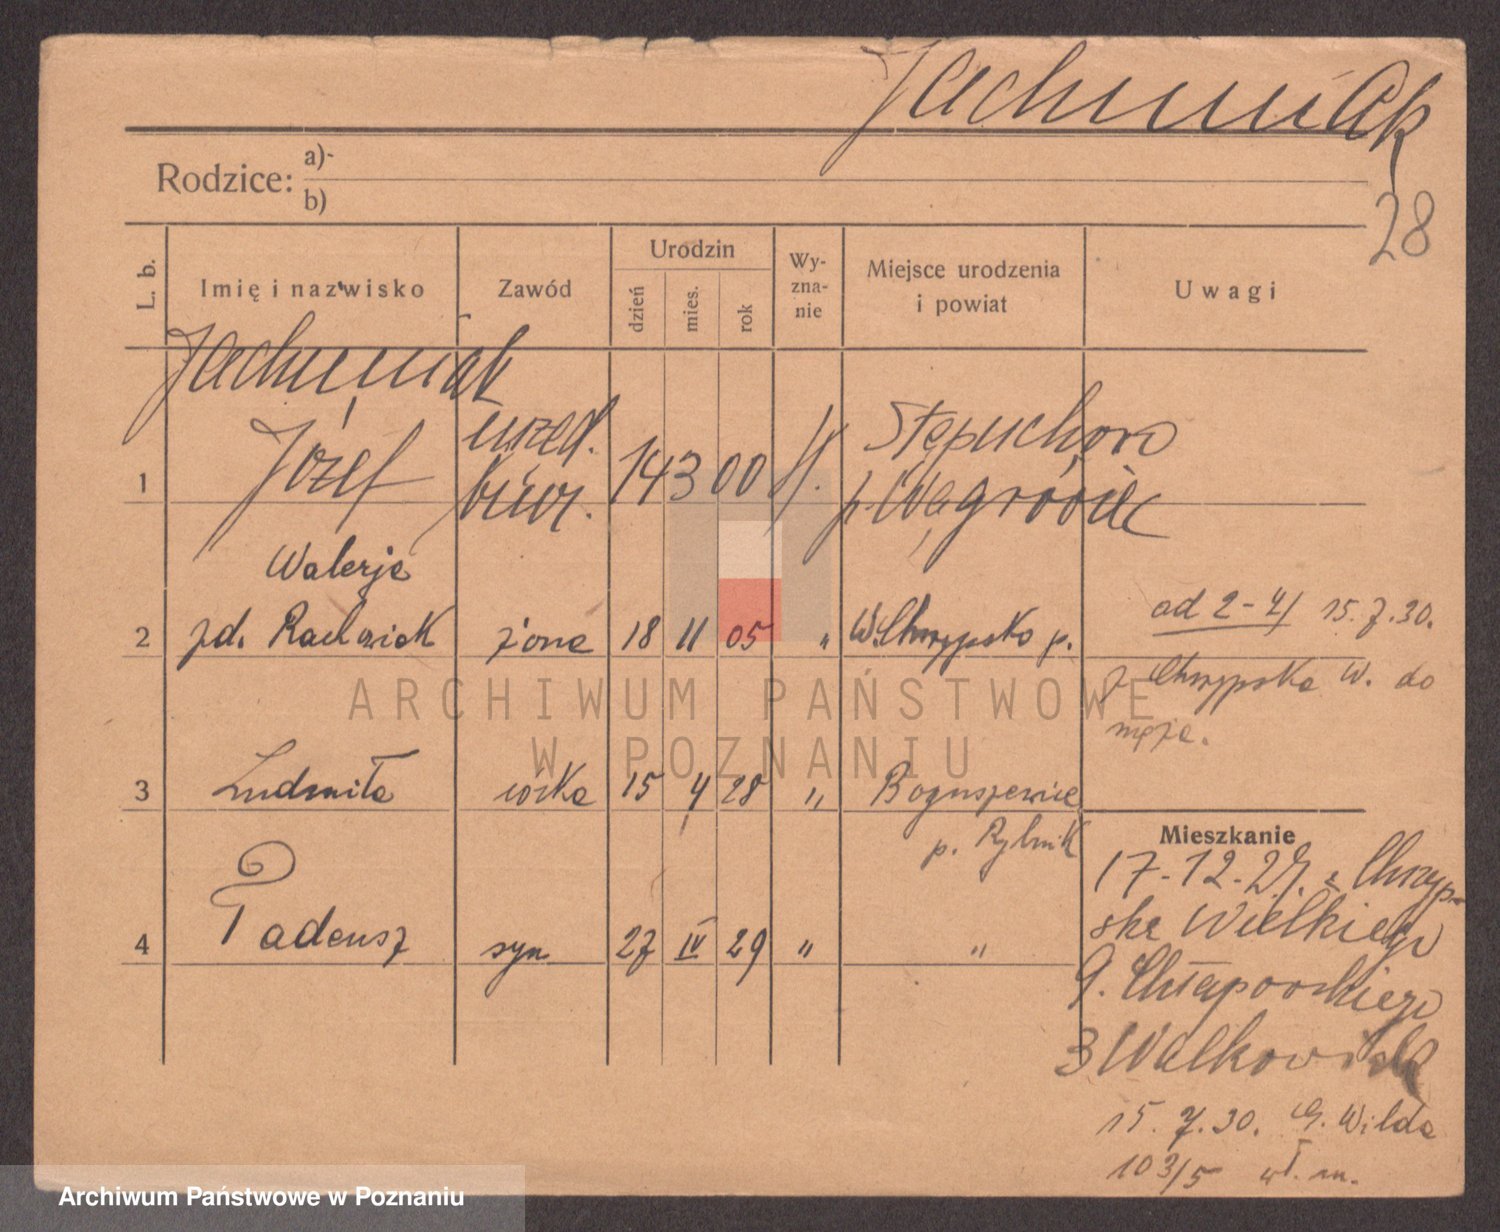 Jachimiak
28
Rodzice: a)-
b)
L. b.
Imię i nazwisko
Zawód
Urodzin
dzień
mies.
rok
Wy-
zna-
nie
Miejsce urodzenia
i powiat
Uwagi
Jachimiak
1 Józef urzęd. 14 3 00
biur.
Stępuchowo
p. Wągrówiec
Walerja
2 zd. Rachwiak żona 18 11 05 " W. Chrzypsko p.
od 2-4/ 15.7.30.
z Chrzypska W. do
męża.
3 Ludmiła córka 15 4 28 " Boguszewice
p. Rybnik
4 Tadeusz syn 27 IV 29 " "
Mieszkanie
17-12-29. z Chrzyp-
ska Wielkiego
G. Chłapowskiego
3 Walkowiak
15.7.30. G. Wilda
103/5 wł. m.
ARCHIWUM PAŃSTWOWE
W POZNANIU
Archiwum Państwowe w Poznaniu